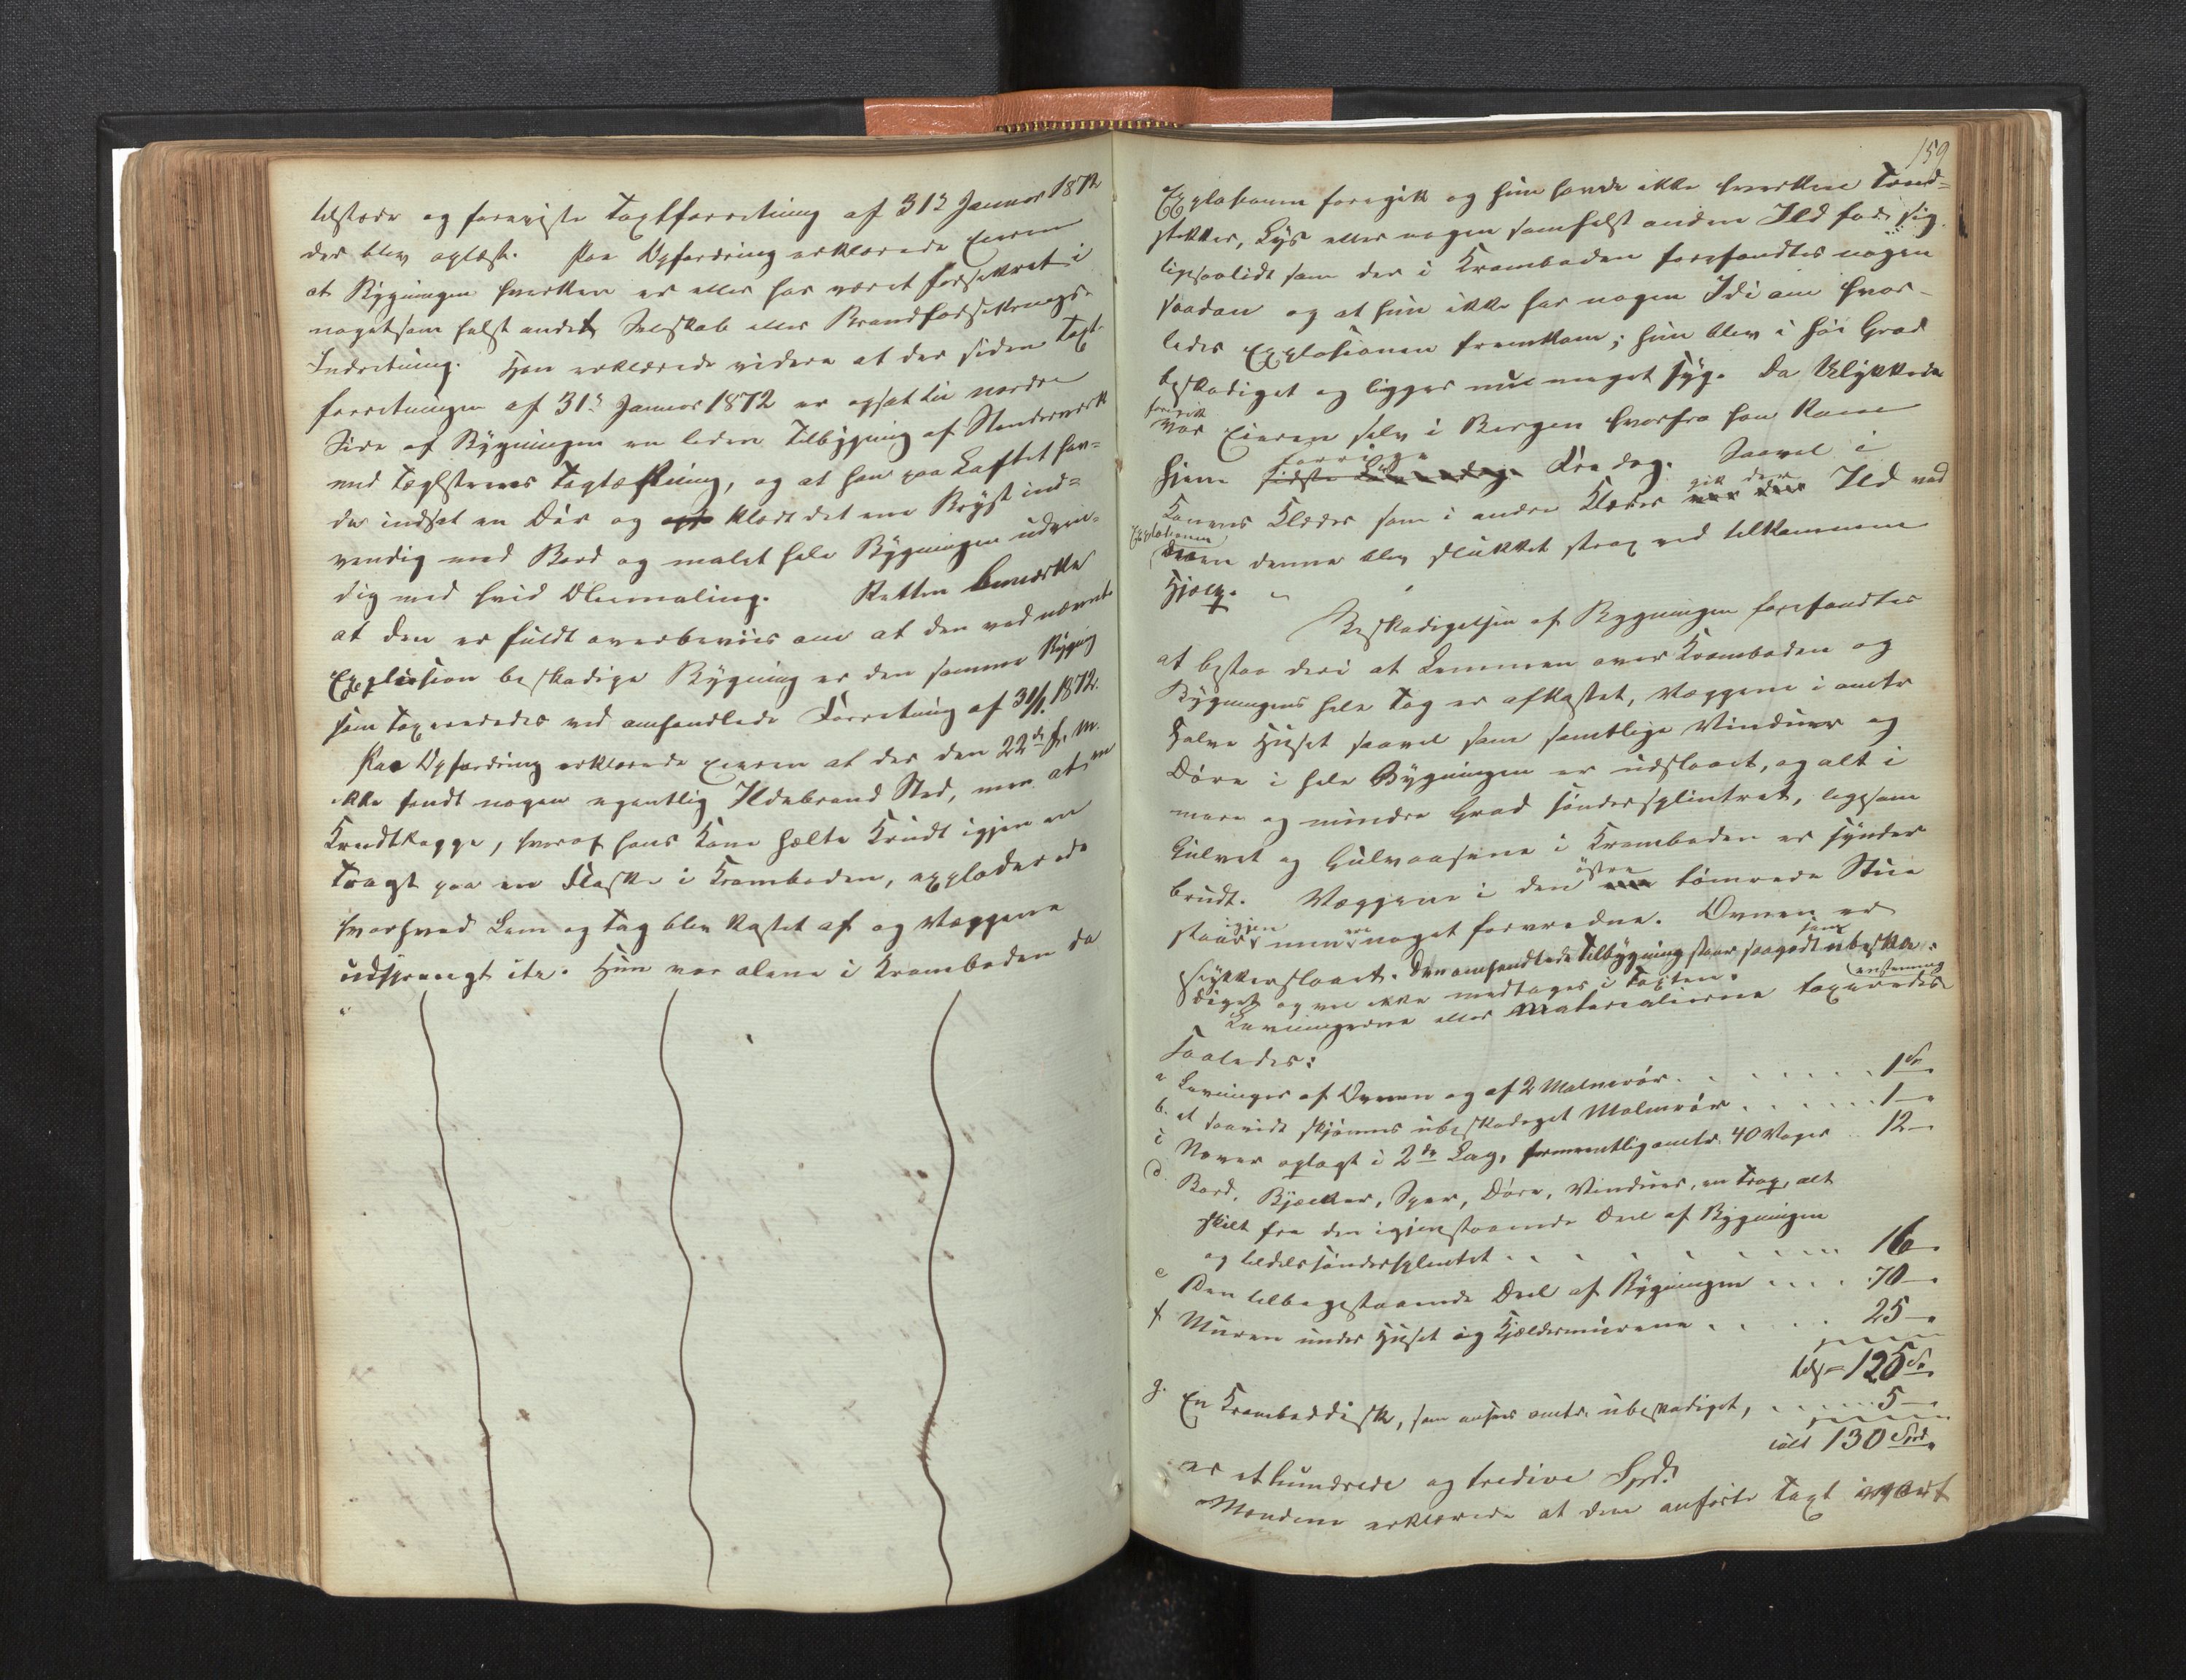 tilstede og foreviste Taxtforretning af 31s Januar 1872
der blev oplæst. Paa Opfordring erklærede Eieren
at Bygningen hverken er eller har været forsikret i
nogetsom helst andet Selskab eller Brandforsikrings-
Indretning. Han erklærede videre at der siden Taxt-
forretningen af 31s Januar 1872 er opsat til nordre
Side af Bygningen en liden Tilbygning af Stenderverk
med Teglsteens Tagtækning, og at han paa Loftet hav-
de indsat en Dör og klædt det ene Bryst ind-
vendig med Bord og malet hele Bygningen udven-
dig med hvid Oliemaling. Retten bemærker
at den er fuldt overbeviis om at den ved nævnte
Explosion beskadige Bygning er den samme Bygning
som taxeredes ved omhandlede Forretning af 31/1. 1872.
Paa Opfordring erklærede Eieren at der den 22de f. M.
ikke fandt nogen egentlig Ildebrand Sted, men at en
Krudtkagge, hvoraf hans Kone hælte Krudt igjen en
Tragt paa en Flaske i Kramboden, exploderede
hvorved Lem og Tag blev kastet af og Væggene
udsprengt etc. Hun var alene i Kramboden da
159
Explosionen foregik og hun havde ikke hverken Tænd-
stikker, Lys eller nogen somhelst anden Ild for sig
ligesaalidt som der i Kramboden forefandtes nogen
saadan og at hun ikke har nogen Idé om hvor-
ledes Explosionen fremkom; hun blev i höi Grad
beskadiget og ligger nu meget syg. Da Ulykken
foregik
var Eieren selv i Bergen hvorfra han kom
forrige
hjem sidste Fredag. Saavel i
gik der
Konens Klæder som i andre Klæder var der Ild ved
Explosionen
men denne blev slukket strax ved tilkommen
Hjælp.
Beskadigelsen af Bygningen forefandtes
at bestaa deri at Lemmen over Kramboden og
Bygningens hele Tag er afkastet, Væggene i omtr
halve Huset saavel som samtlige Vinduer og
Döre i hele Bygningen er udslaaet, og alt i
mere og mindre Grad söndersplintret, ligesom
Gulvet og Gulvaasene i Kramboden er synder
brudt. Væggene i den östre tömrede Stue
staar igjen men ere noget forvredne. Ovnen er
stykkerslaaet. Den omhandlede Tilbygning staar saagodt som ubeska-
diget og vil ikke medtages i Taxten.
Levningerne eller Materialierne taxeredes enstemmig
saaledes:
a Levninger af Ovnen og af 2 Malmrör . . . . . . . 1 Sp.
b. et saavidt skjönnes ubeskadiget Malmrör . . . . . . 1 —
c Never oplagt i 2de Lag, formentlig omtr. 40 Voger . . 12 —
d. Bord, Bjælker, Sper, Döre, Vinduer, en Trap, alt
skilt fra den igjenstaaende Deel af Bygningen
og tildels söndersplintet . . . . . . . . . 16 —
e Den tilbagestaaende Deel af Bygningen . . . . 70 —
f Muren under Huset og Kjældermurene . . . . . 25 —
tils = 125 Sp.
g. En Krambeddisk, som ansees omtr. ubeskadiget, . . . . 5 —
ialt 130 Spd.
er et hundrede og tredive Spd.
Mændene erklærede at den anförte Taxt